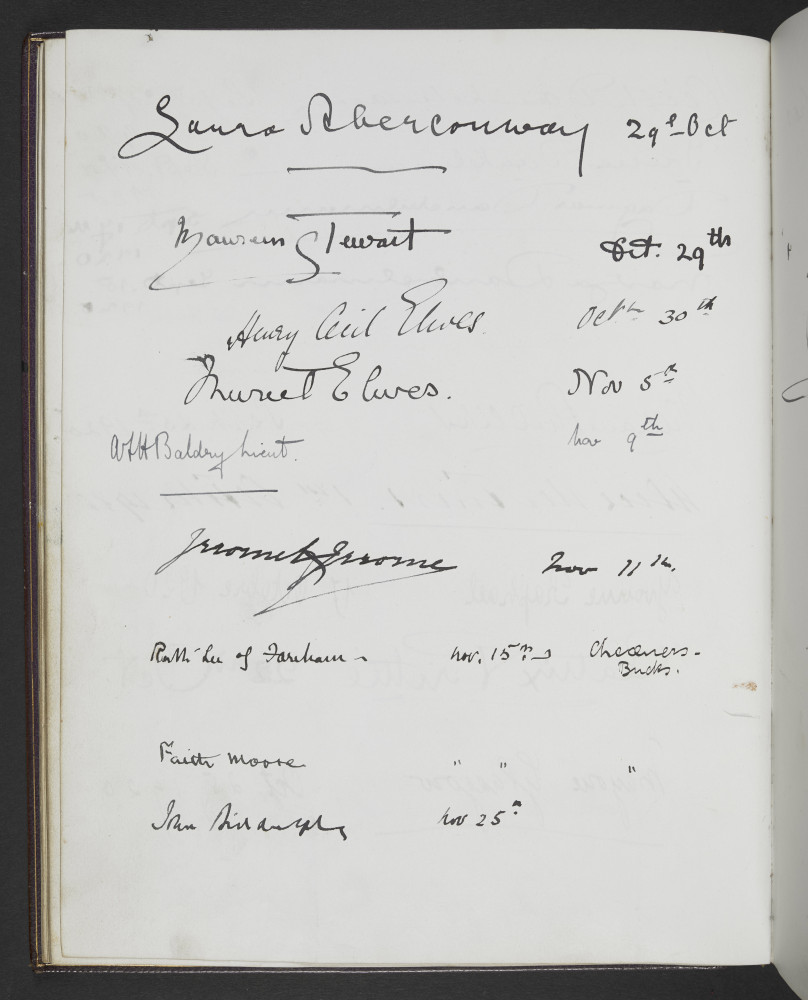 Laura Aberconway 29th Oct
Maureen Stewart Oct. 29th
Henry Cecil Elwes Octbr 30th
Muriel Elwes. Nov 5th
Baldry Lieut. Nov 9th
Jerome K Jerome Nov 11th.
Ruth Lee of Fareham - Nov. 15th Chequers -
Bucks.
Faith Moore " " "
John Biddulph Nov 25th